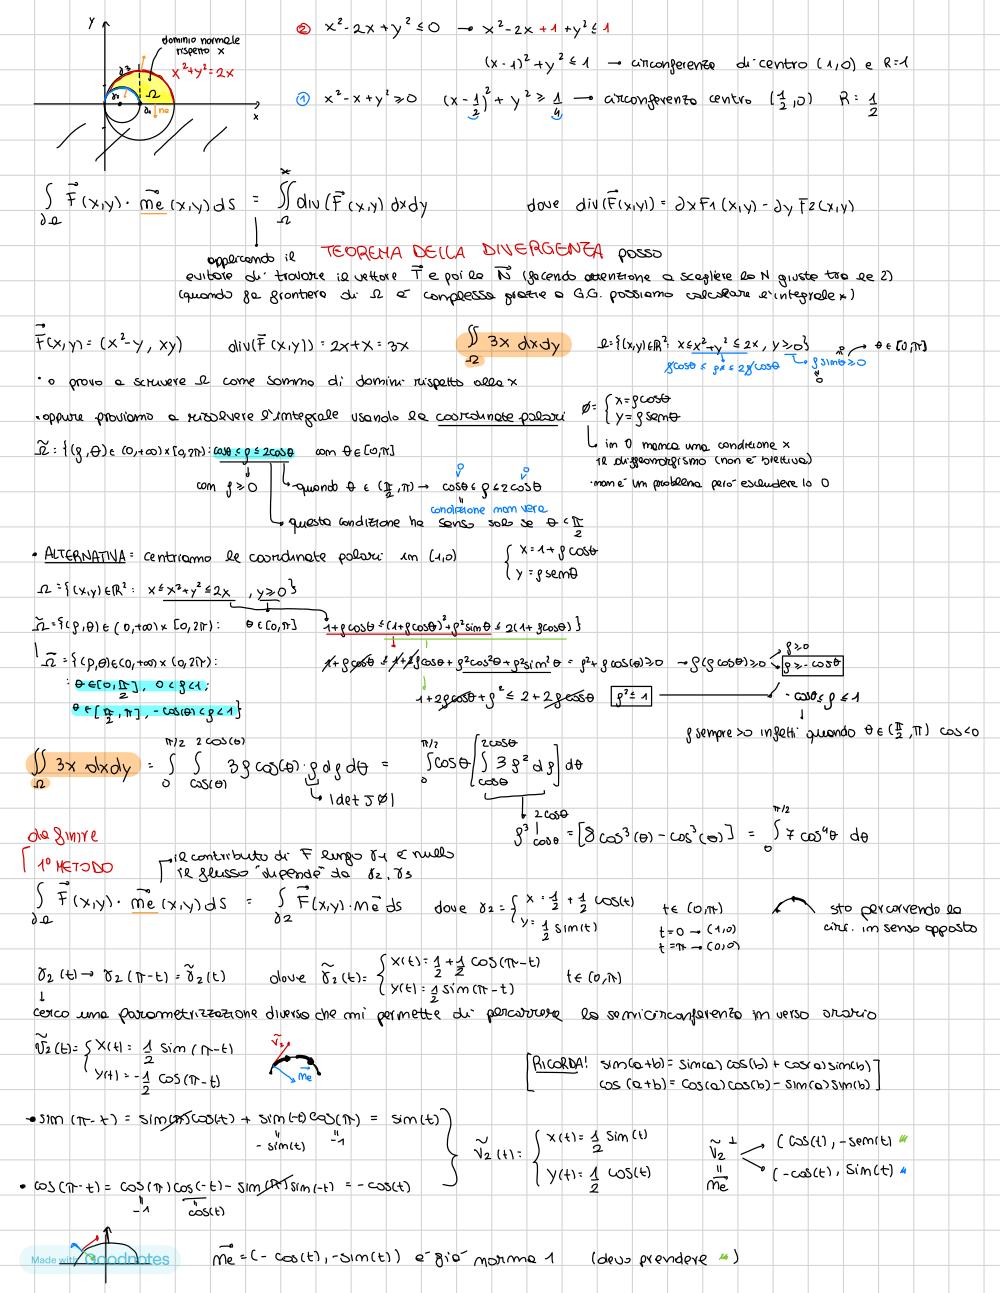 y
dominio normale
rispetto x
x²+y²=2x
γ3
γ2
Ω
γ1
ne
x
② x²-2x+y² ≤ 0 → x²-2x+1+y² ≤ 1
(x-1)²+y² ≤ 1 → circonferenza di centro (1,0) e R=1
① x²-x+y² ≥ 0 (x-1/2)²+y² ≥ 1/4 → circonferenza centro (1/2,0) R: 1/2
∫∂Ω F(x,y)· ne (x,y) ds = ∬Ω div(F(x,y)) dxdy dove div(F(x,y)) = ∂x F1(x,y) - ∂y F2(x,y)
applicando il TEOREMA DELLA DIVERGENZA posso
evitare di trovare il vettore T e poi la N (facendo attenzione a scegliere la N giusta tra le 2)
(quando fa frontiera di Ω è complessa grazie a G.G. possiamo calcolare l'integrale *)
F(x,y) = (x²-y, xy) div(F(x,y)) = 2x+x = 3x ∬Ω 3x dxdy Ω={(x,y)∈R²: x≤x²+y²≤2x, y≥0} → θ∈[0,π]
ρcosθ ≤ ρ² ≤ 2ρcosθ ρsinθ≥0
• o provo a scrivere Ω come somma di domini rispetto alla x
• oppure proviamo a risolvere l'integrale usando le coordinate polari φ= { x=ρcosθ
y=ρsenθ
Ω̃={(ρ,θ)∈(0,+∞)×[0,2π): cosθ≤ρ≤2cosθ con θ∈[0,π]
in 0 manca una condizione x
il diffeomorfismo (non è biettiva)
• non è un problema però escludere lo 0
con ρ≥0 quando θ∈(π/2,π) → cosθ≤ρ≤2cosθ
condizione non vera
questa condizione ha senso solo se θ<π/2
• ALTERNATIVA: centriamo le coordinate polari in (1,0) { x=1+ρcosθ
y=ρsenθ
Ω={(x,y)∈R²: x≤x²+y²≤2x, y≥0}
Ω̃={(ρ,θ)∈(0,+∞)×[0,2π): θ∈[0,π] 1+ρcosθ≤(1+ρcosθ)²+ρ²sinθ≤2(1+ρcosθ)}
Ω̃={(ρ,θ)∈(0,+∞)×(0,2π): 1+ρcosθ≤1+2ρcosθ+ρ²cos²θ+ρ²sin²θ = ρ²+ρcos(θ)≥0 → ρ(ρcosθ)≥0 ρ≥0
ρ≥-cosθ
: θ∈[0,π/2], 0<ρ<1;
θ∈[π/2,π], -cos(θ)<ρ<1}
1+2ρcosθ+ρ²≤2+2ρcosθ ρ²≤1 -cosθ≤ρ≤1
ρ sempre >0 infatti quando θ∈(π/2,π) cos<0
∬Ω 3x dxdy = ∫0 π/2 ∫cos(θ) 2cos(θ) 3ρcos(θ)·ρ dρ dθ = ∫0 π/2 cosθ [∫cosθ 2cosθ 3ρ² dρ] dθ
|det Jφ|
ρ³ |cosθ 2cosθ = [8cos³(θ)-cos³(θ)] = ∫0 π/2 7cos⁴θ dθ
da finire
1° METODO
il contributo di F lungo γ1 è nullo
il flusso "dipende" da γ2, γ3
∫∂Ω F(x,y)· ne (x,y) ds = ∫γ2 F(x,y)·ne ds dove γ2= { x=1/2+1/2 cos(t)
y=1/2 sin(t)
t∈(0,π)
t=0 → (1,0)
t=π → (0,0)
sto percorrendo la
circ. in senso opposto
γ2(t) → γ2(π-t) = γ̃2(t) dove γ̃2(t)= { x(t)=1/2+1/2 cos(π-t)
y(t)=1/2 sin(π-t)
t∈(0,π)
cerco una parametrizzazione diversa che mi permette di percorrere la semicirconferenza in verso orario
ṽ2(t)= { x(t)=1/2 sin(π-t)
y(t)=-1/2 cos(π-t)
ṽ2
ne
[RICORDA! sin(a+b)=sin(a)cos(b)+cos(a)sin(b)
cos(a+b)=cos(a)cos(b)-sin(a)sin(b)]
• sin(π-t) = sin(π)cos(t)+sin(-t)cos(π) = sin(t)
-sin(t) -1
ṽ2(t)= { x(t)=1/2 sin(t)
y(t)=1/2 cos(t)
ṽ2⊥ (cos(t), -sen(t)
(-cos(t), sin(t)
ne
• cos(π-t) = cos(π)cos(-t)-sin(π)sin(-t) = -cos(t)
-1 cos(t)
ne=(-cos(t),-sin(t)) è già norma 1 (devo prendere )
Made with Goodnotes